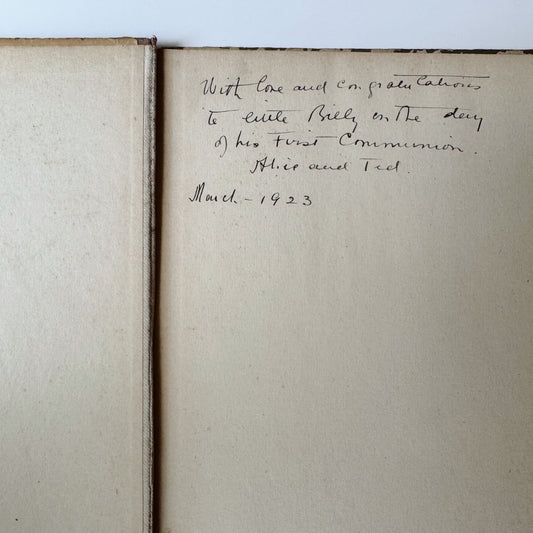 With love and congratulations
to little Billy on the day
of his First Communion.
Alice and Ted.
March - 1923